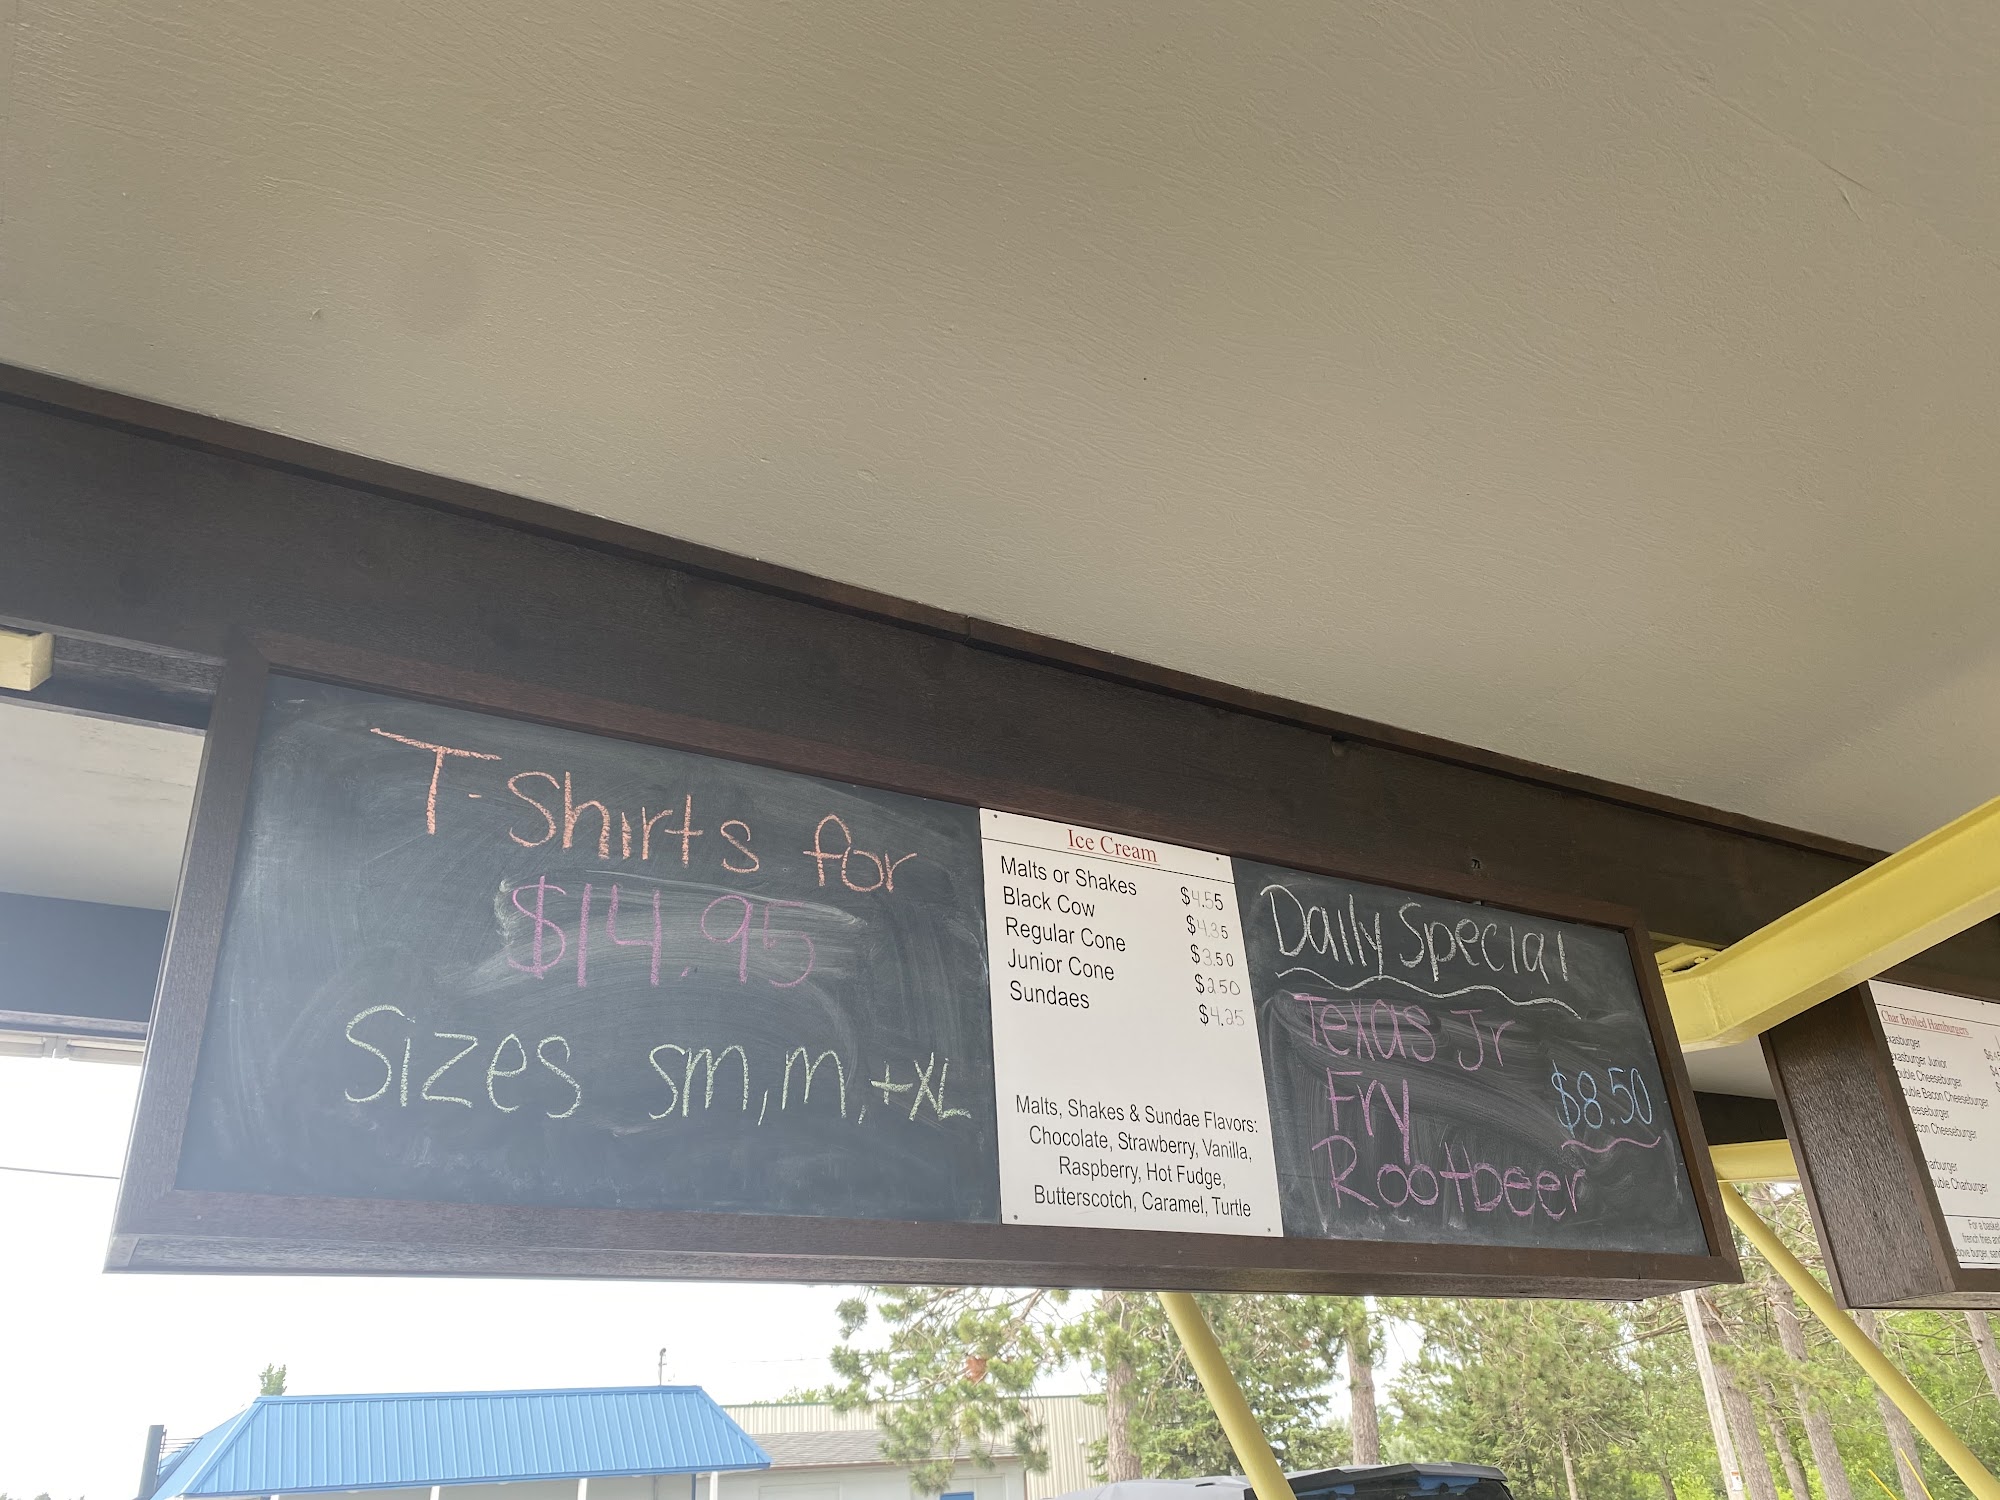 T-Shirts for
$14.95
Sizes sm, m, + XL
Ice Cream
Malts or Shakes $4.55
Black Cow $4.35
Regular Cone $3.50
Junior Cone $2.50
Sundaes $4.25
Malts, Shakes & Sundae Flavors:
Chocolate, Strawberry, Vanilla,
Raspberry, Hot Fudge,
Butterscotch, Caramel, Turtle
Daily Special
Texas Jr
Fry $8.50
Rootbeer
Char Broiled Hamburgers
Junior
Cheeseburger
Bacon Cheeseburger
Cheeseburger
Charburger
For a basket
french fries and